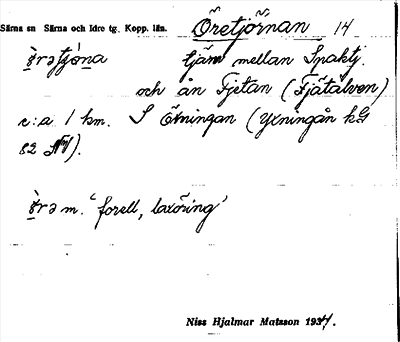 Särna sn Särna och Idre tg. Kopp. län. Öretjörnan 14
ö̀rətjö́na tjärn mellan Spaktj.
och ån Fjetan (Fjätälven)
c:a 1 km. S Öxningan (Yxningån kG
82 NV).
ö̀rə m. 'forell, laxöring'
Niss Hjalmar Matsson 1934.